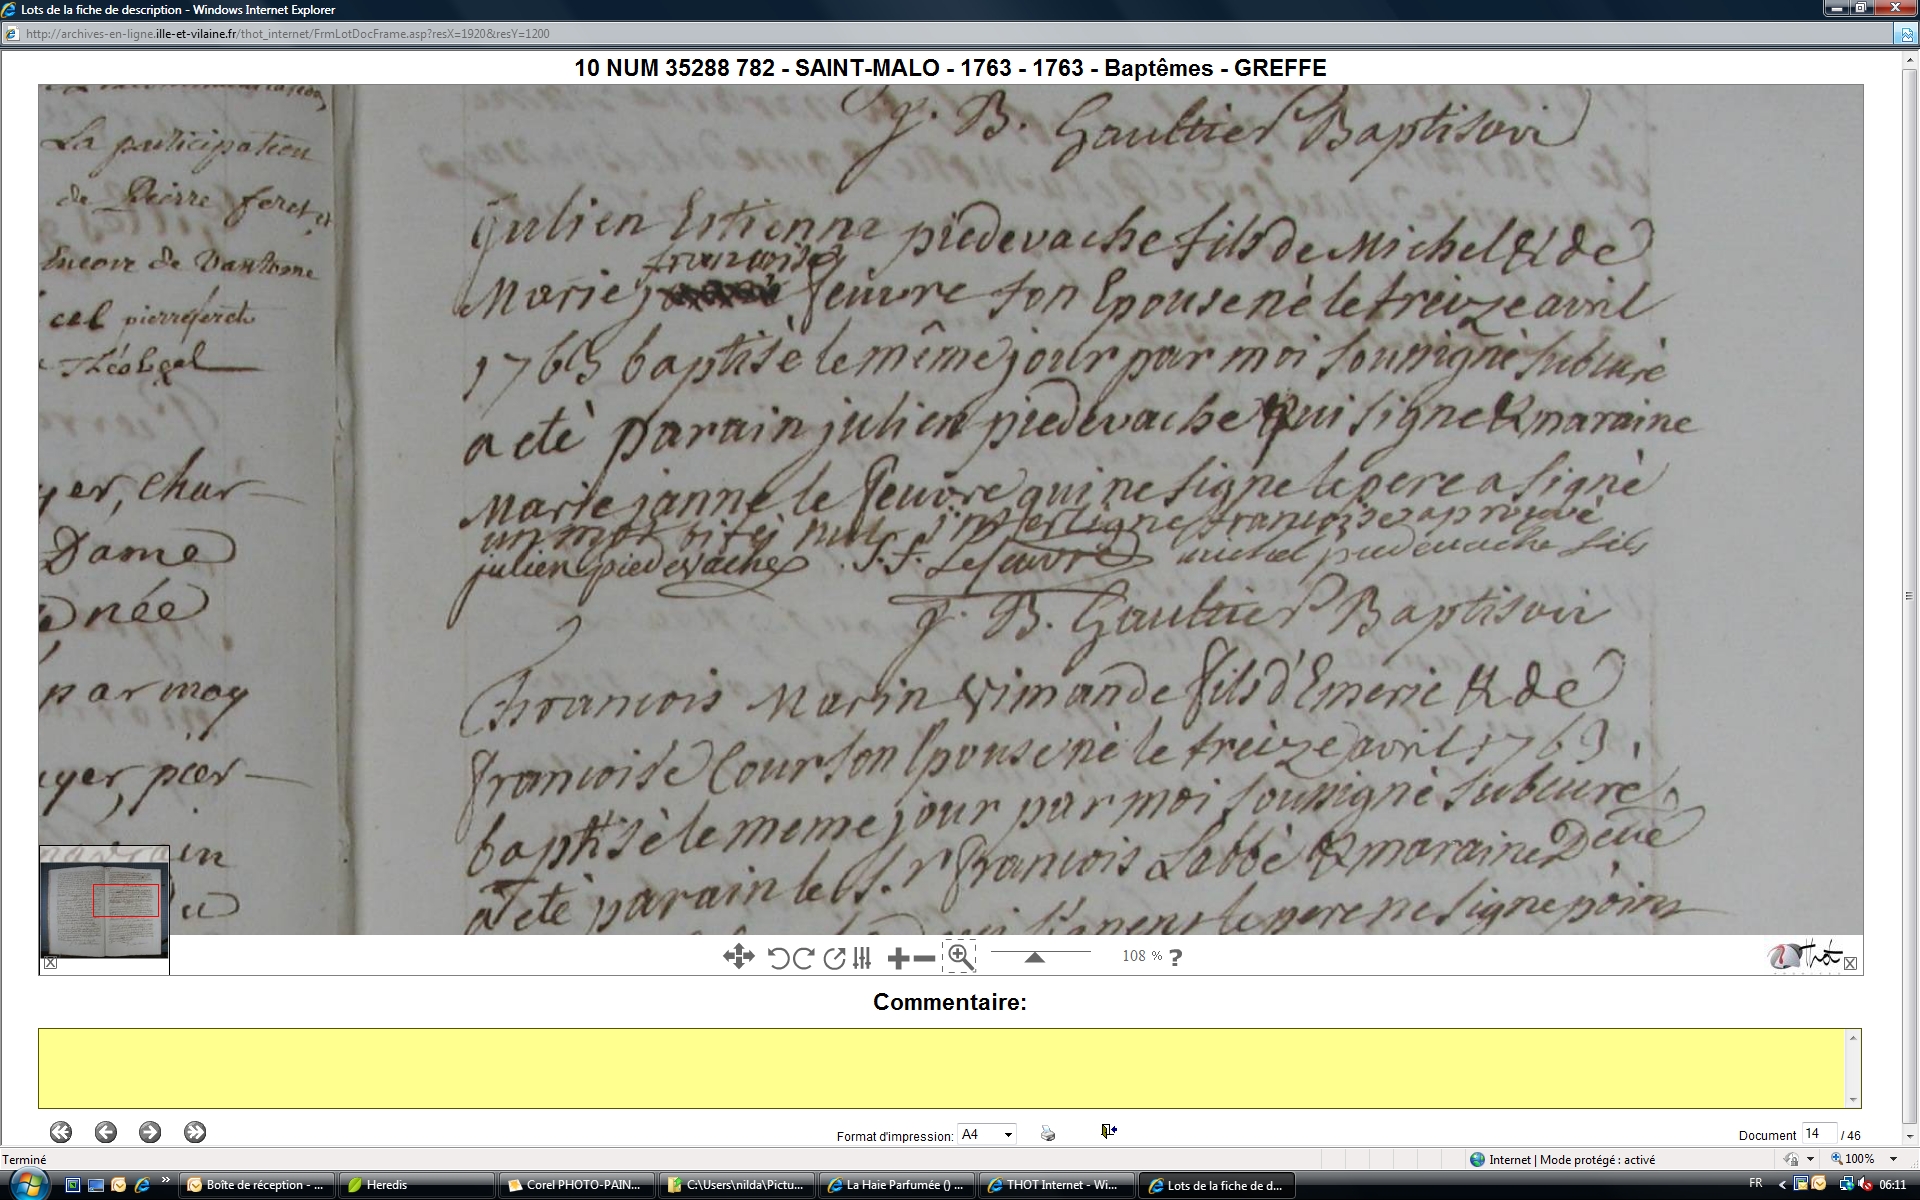 Lots de la fiche de description - Windows Internet Explorer
http://archives-en-ligne.ille-et-vilaine.fr/thot_internet/FrmLotDocFrame.asp?resX=1920&resY=1200
10 NUM 35288 782 - SAINT-MALO - 1763 - 1763 - Baptêmes - GREFFE
La participation
de Pierre feret
Encore de Vantome
cal pierre feret
yer, char
Dame
née
par moy
yer, pier
J. B. Gaultier Baptisoir
Julien Estienne piedevache fils de Michel & de
françoise
Marie feuvre son Epouse né le treize avril
1763 baptisè le même jour par moi soussignè subcurè
a etè parain julien piedevache qui signe & maraine
Marie janne le feuvre qui ne signe le pere a signè
un mot nul interligne francoise aprouvé
julien piedevache J. F. Lefeuvre michel piedevache fils
J. B. Gaultier Baptisoir
francois Marin Vimande fils d'Emerie & de
francoise Courson Epouse né le treize avril 1763
baptisè le meme jour par moi soussignè subcurè
a etè parain le S.r francois Labbè & maraine
le pere ne signe point
108 % ?
Thot
Commentaire:
Format d'impression: A4
Document 14 / 46
Terminé
Internet | Mode protégé : activé
100%
Boîte de réception - ...
Heredis
Corel PHOTO-PAIN...
C:\Users\nilda\Pictu...
La Haie Parfumée () ...
THOT Internet - Wi...
Lots de la fiche de d...
FR
06:11